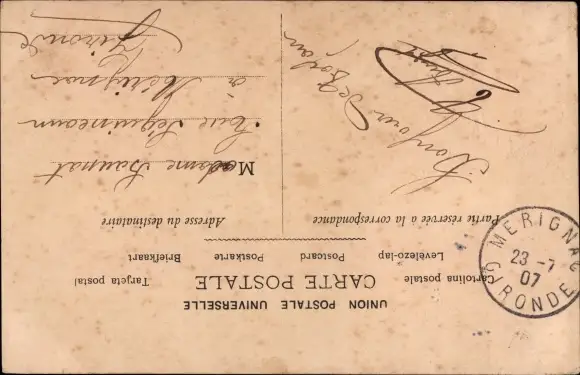 UNION POSTALE UNIVERSELLE
CARTE POSTALE
Tarjeta postal
Cartolina postale
Briefkaart
Postkarte
Postcard
Levelezo-lap
Adresse du destinataire
Partie réservée à la correspondance
Madame Saunat
Rue
à Mérignac
Gironde
Bonjour De Bordeau
MERIGNAC
23 -7
07
GIRONDE